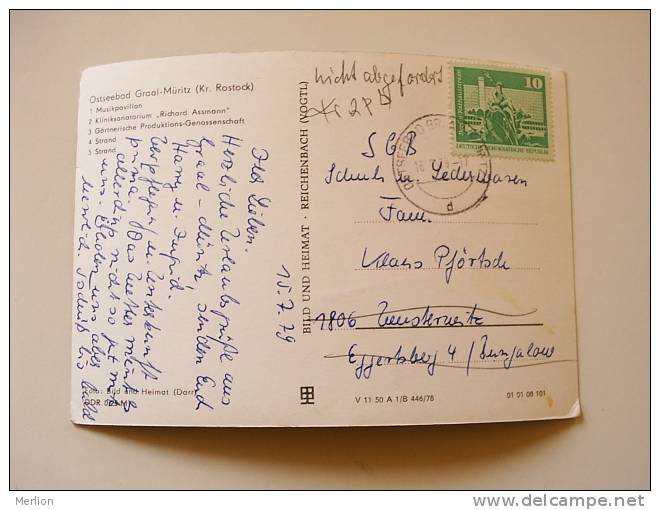 Ostseebad Graal-Müritz (Kr. Rostock)
1 Musikpavillon
2 Kliniksanatorium „Richard Assmann"
3 Gärtnerische Produktions-Genossenschaft
4 Strand
5 Strand
15.7.79
Ihr Lieben.
Herzliche Urlaubsgrüße aus
Graal-Müritz senden Euch
Harry u. Ingrid.
Verpflegung u. Unterkunft
prima. Das Wetter
allerdings nicht so gut
uns. Erholen uns aber
Tschüß bis bald
Foto: Bild und Heimat (Darr)
BILD UND HEIMAT · REICHENBACH (VOGTL)
nicht abgefordert
10
DEUTSCHE DEMOKRATISCHE REPUBLIK
OSTSEEBAD
SGB
Schuh u. Lederwaren
Fam.
Klaus Pförtsch
1806
Eggertsberg 4 / Bungalow
V 11 50 A 1/B 446/78
01 01 08 101
Merlion
www.delcampe.net